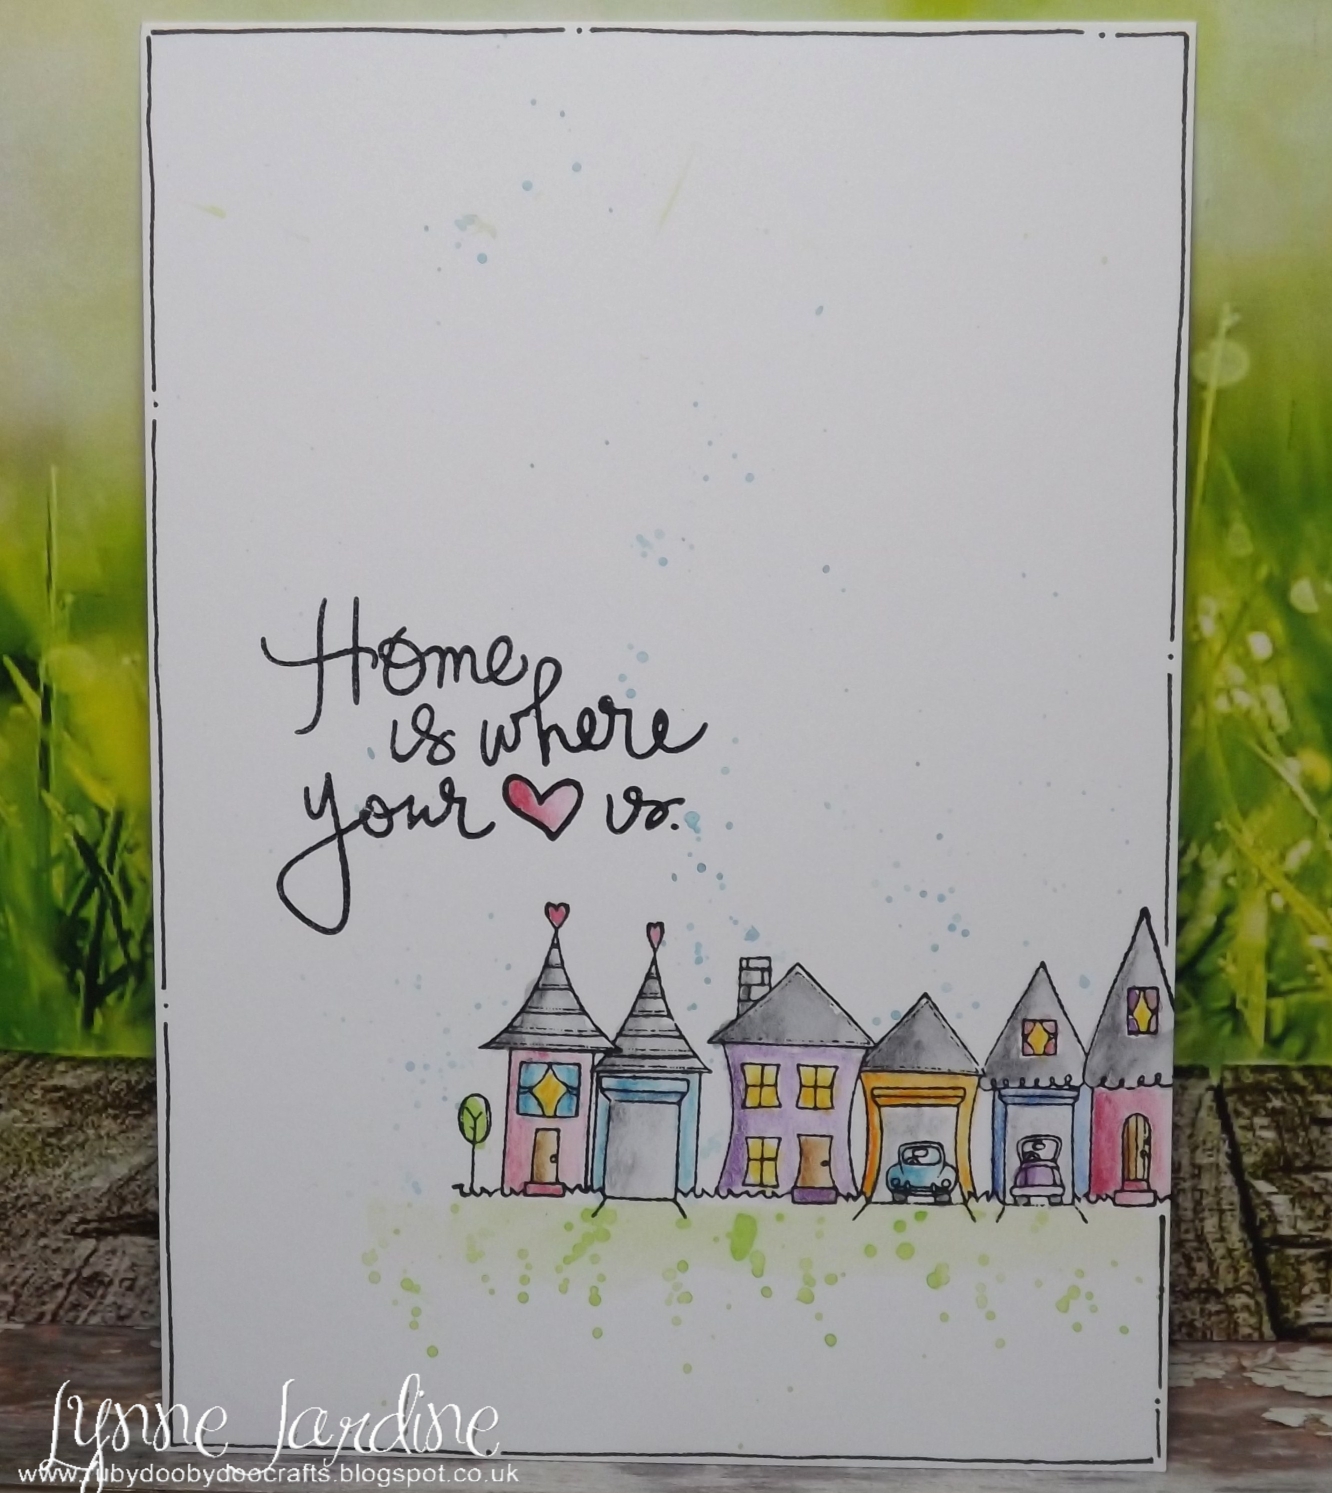 Home
is where
your is.
Lynne Jardine
www.rubydoobydoocrafts.blogspot.co.uk